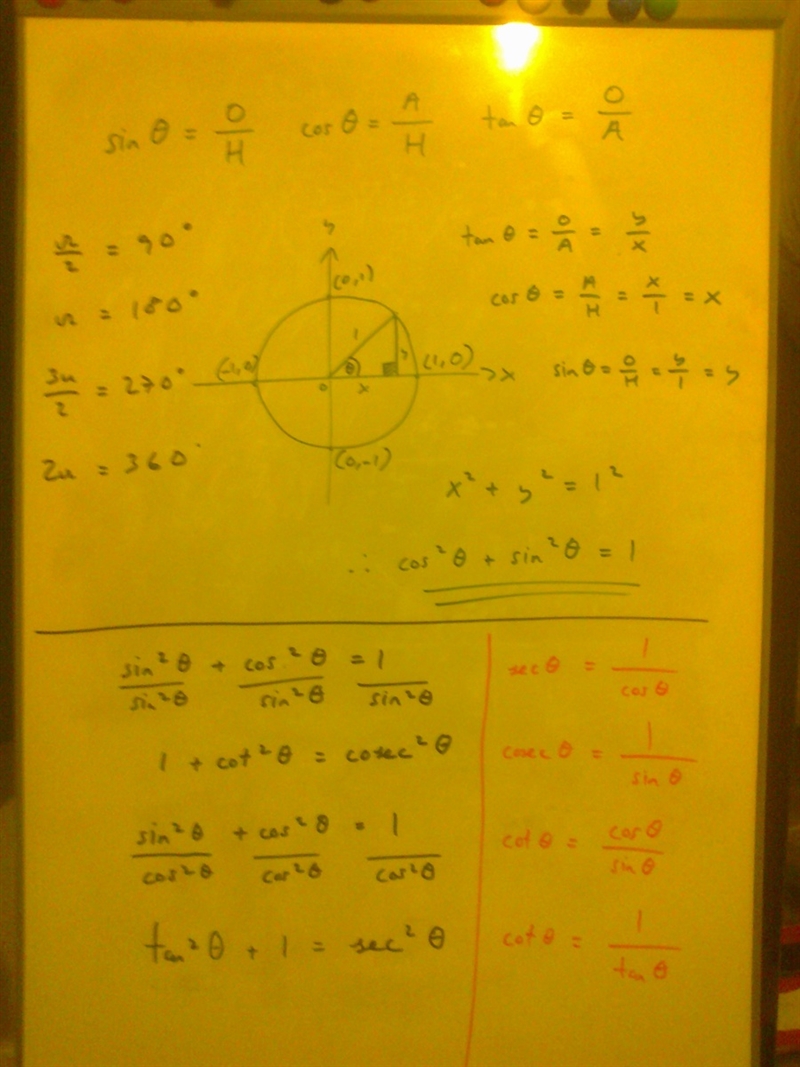 sin θ = O/H   cos θ = A/H   tan θ = O/A
π/2 = 90°
π = 180°
3π/2 = 270°
2π = 360°
y
(0,1)
1
y
(-1,0)
(1,0)
θ
0
x
x
(0,-1)
tan θ = O/A = y/x
cos θ = A/H = x/1 = x
sin θ = O/H = y/1 = y
x² + y² = 1²
∴ cos²θ + sin²θ = 1
sin²θ/sin²θ + cos²θ/sin²θ = 1/sin²θ
1 + cot²θ = cosec²θ
sin²θ/cos²θ + cos²θ/cos²θ = 1/cos²θ
tan²θ + 1 = sec²θ
sec θ = 1/cos θ
cosec θ = 1/sin θ
cot θ = cos θ/sin θ
cot θ = 1/tan θ